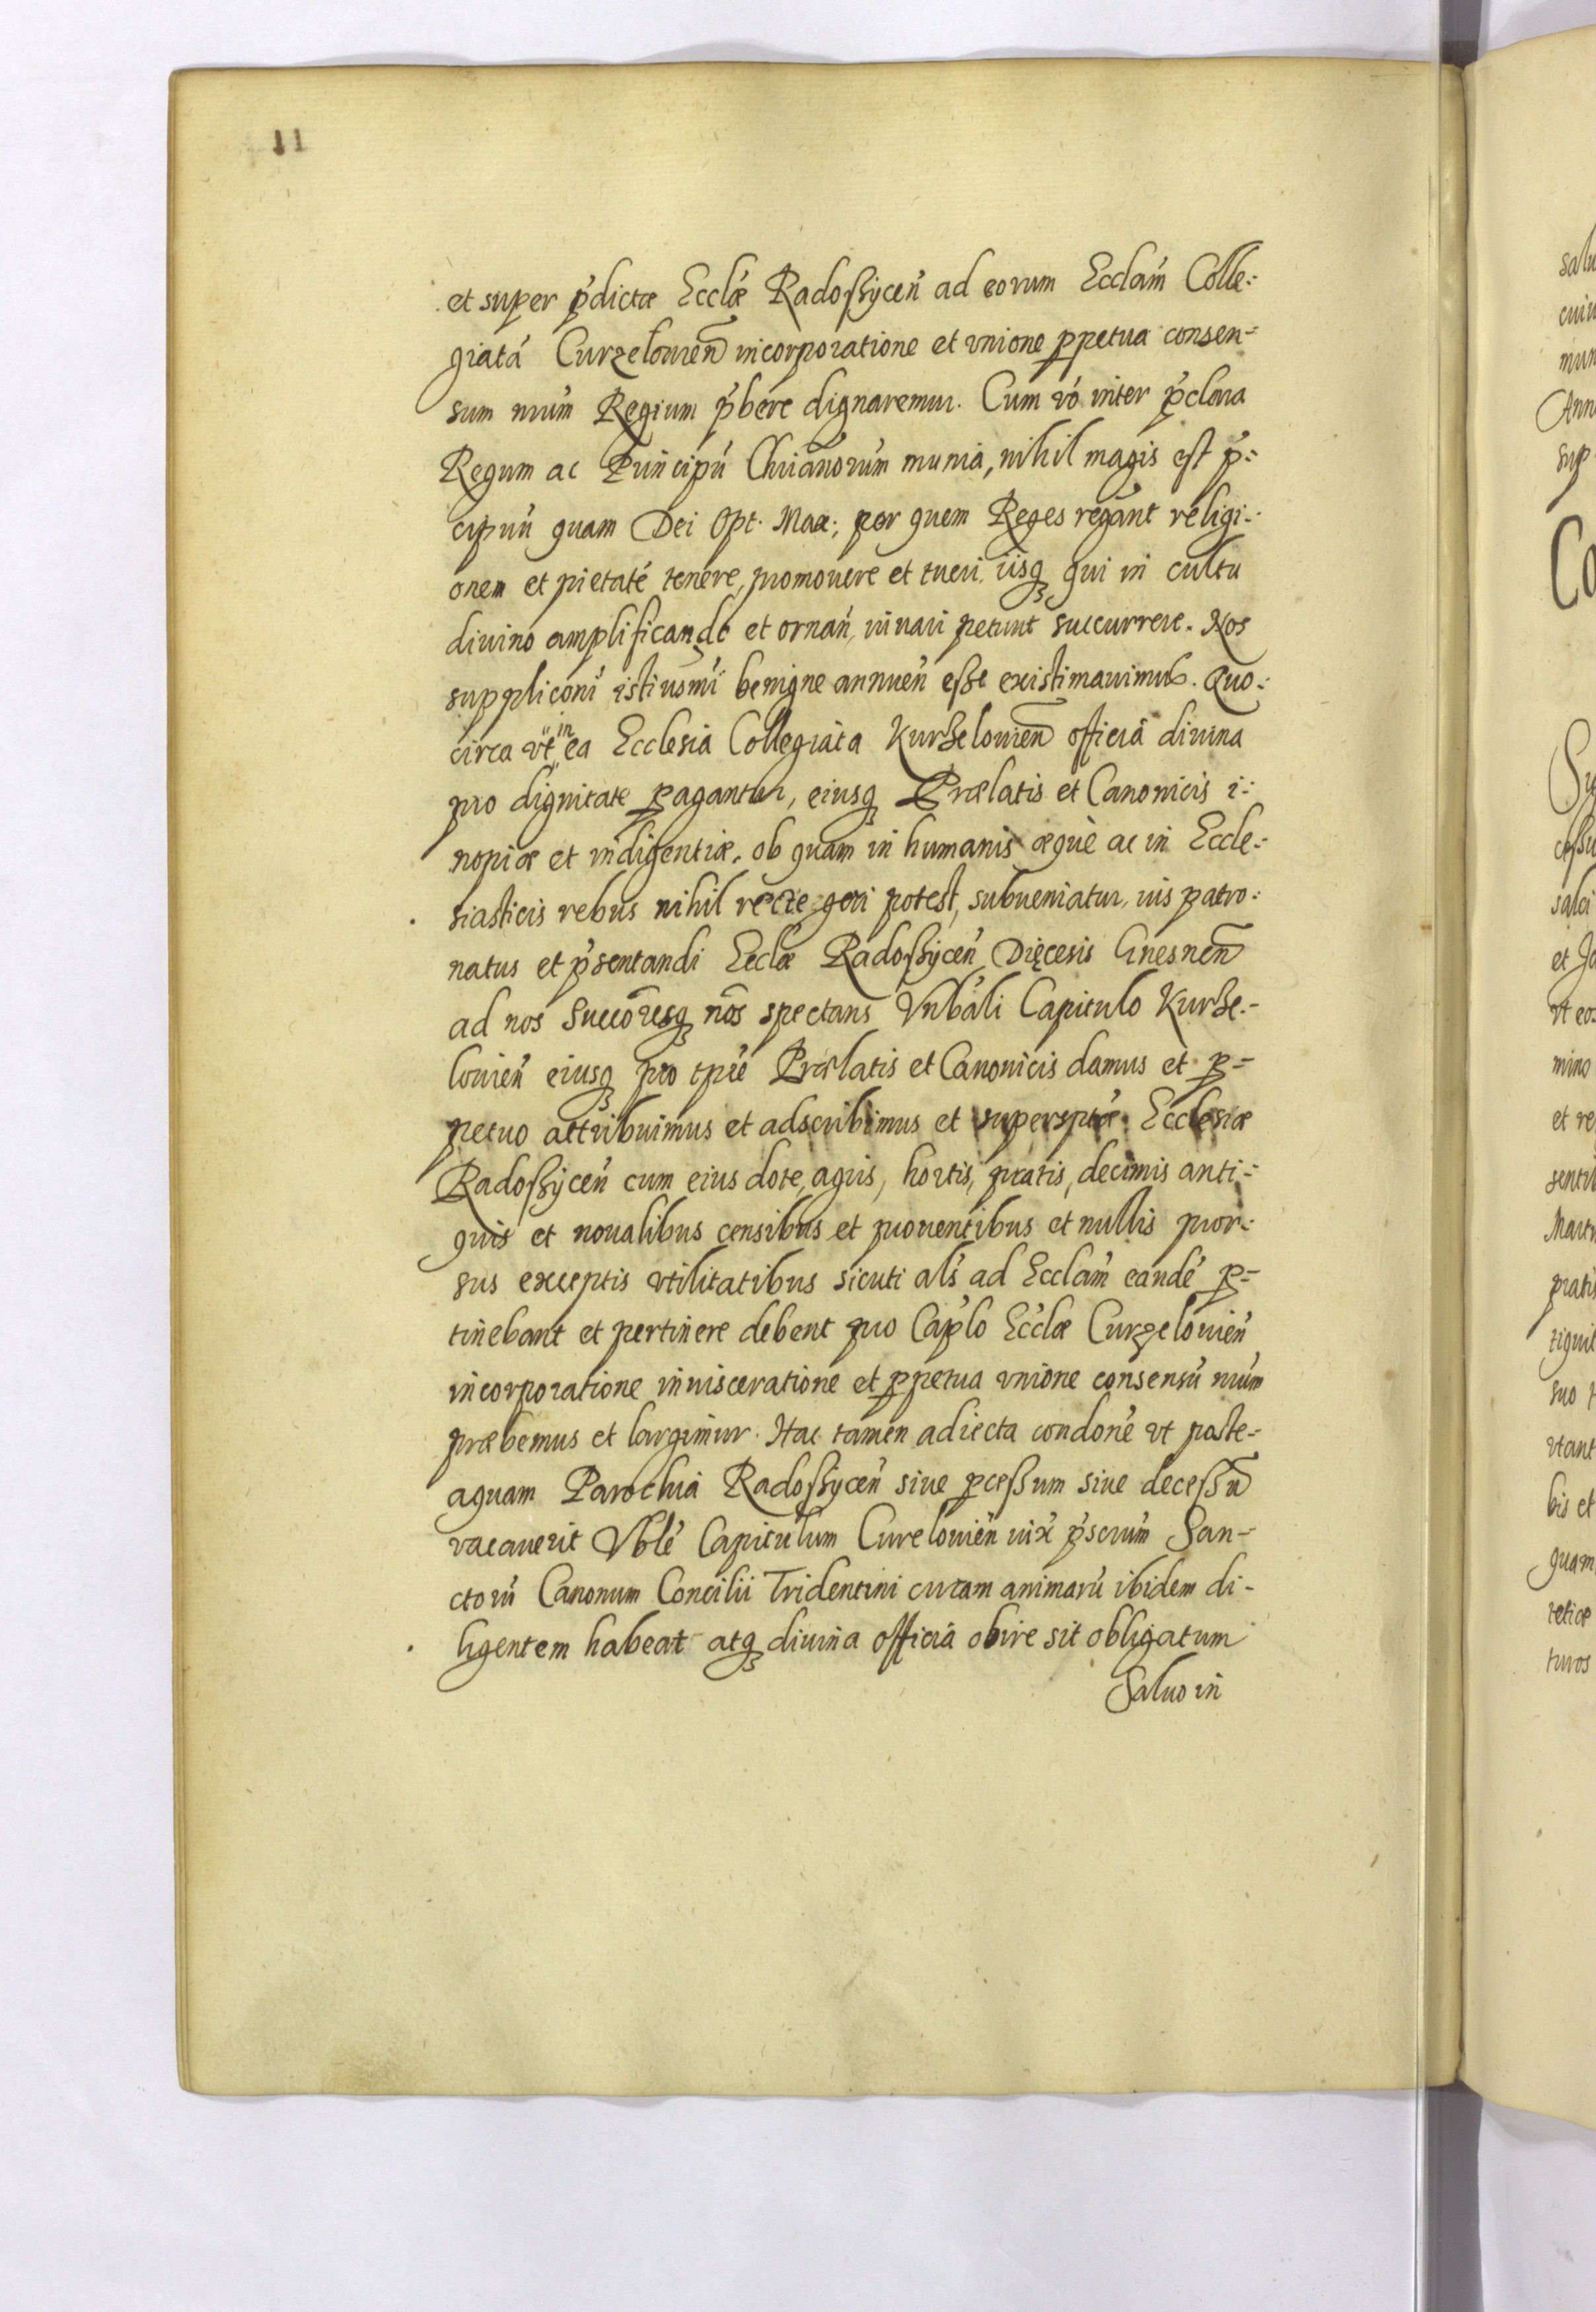 11
et super p̓dictæ Ecclæ̓ Radoßÿcen̓ ad eorum Ecclam̓ Colle=
giatá Curzelouien̄ incorporatione et vnione ꝑpetua consen=
sum nrum̓ Regium p̓bere dignaremur. Cum vó inter p̓clara
Regum ac Principú Chrianorum̓ munia, nihil magis est p̓=
cipuú quam Dei Opt. Max; per quem Reges regant religi=
onem et pietaté tenere, promouere et tueri, iisqꝫ qui in cultu
diuino amplificando et ornan̓, iuuari petunt succurrere. Nos
suppliconi̓ istiusmi̓ benigne annuen̓ eße existimauimus. Quo=
circa vt in ea Ecclesia Collegiata Kurßelouien̄ officia diuina
pro dignitate ꝑagantur, eiusqꝫ Prælatis et Canonicis i=
nopiæ et indigentiæ, ob quam in humanis æquè ac in Eccle=
siasticis rebus nihil recte geri potest, subueniatur, ius patro=
natus et p̓sentandi Ecclæ̓ Radoßÿcen̓ Dięcesis Gnesnen̄
ad nos Succōresqꝫ nōs spectans Vnb̓ali Capitulo Kurße=
louien̓ eiusqꝫ pro tpre̓ Prælatis et Canonicis damus et ꝑ=
petuo attribuimus et adscribimus et superspt̓æ Ecclesiæ
Radoßÿcen̓ cum eius dote, agris, hortis, pratis, decimis anti=
quis et noualibus censibus et prouentibus et nullis pror=
sus exceptis vtilitatibus sicuti als̓ ad Ecclam̓ eandé ꝑ=
tinebant et pertinere debent pro Cap̓lo Ec̓clæ Curzelouien̓
incorporatione inuisceratione et ꝑpetua vnione consensú nrum̓
præbemus et largimur. Hac tamen adiecta condone̓ vt poste=
aquam Parochia Radoßÿcen̓ siue ꝑceßum siue deceßū
vacauerit Vble̓ Capitulum Curelouien̓ iux̓ p̓scrum̓ San=
ctorú Canonum Concilii Tridentini curam animarú ibidem di=
ligentem habeat atqꝫ diuina officia obire sit obligatum
Saluo in